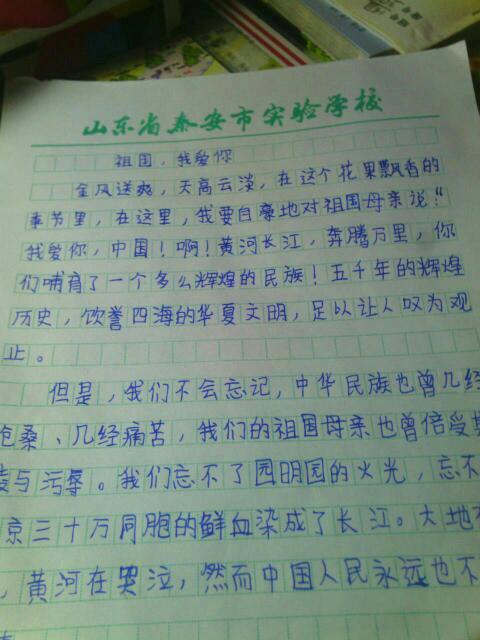 山东省泰安市实验学校
祖国，我爱你
金风送爽，天高云淡，在这个花果飘香的
季节里，在这里，我要自豪地对祖国母亲说："
我爱你，中国！啊！黄河长江，奔腾万里，你
们哺育了一个多么辉煌的民族！五千年的辉煌
历史，饮誉四海的华夏文明，足以让人叹为观
止。
但是，我们不会忘记，中华民族也曾几经
沧桑、几经痛苦，我们的祖国母亲也曾倍受
与污辱。我们忘不了园明园的火光，忘不
京三十万同胞的鲜血染成了长江。大地
，黄河在哭泣，然而中国人民永远也不